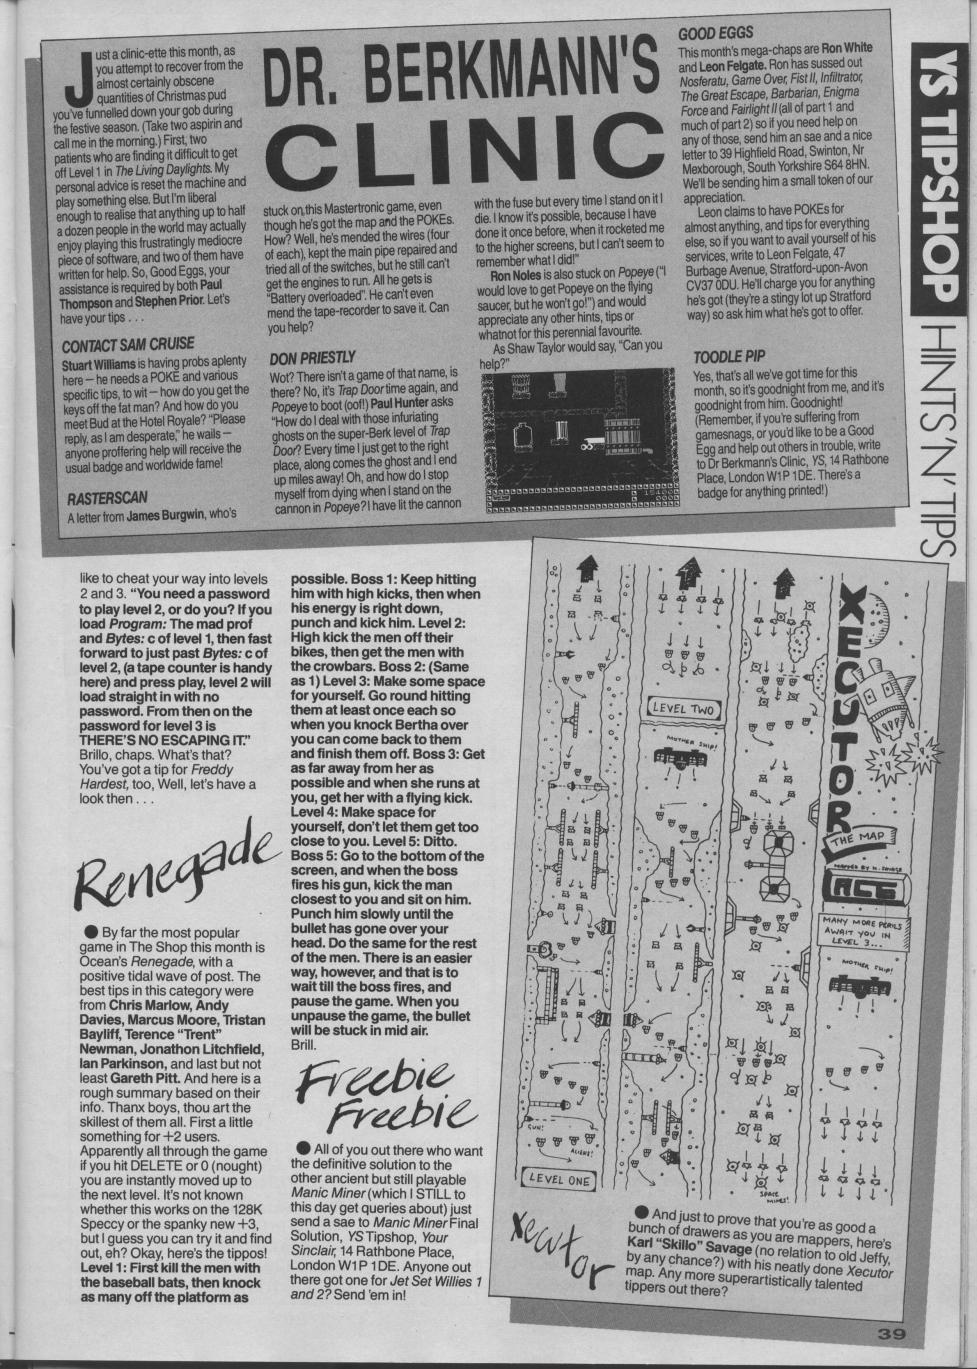 DR. BERKMANN'S
CLINIC
Just a clinic-ette this month, as
you attempt to recover from the
almost certainly obscene
quantities of Christmas pud
you've funnelled down your gob during
the festive season. (Take two aspirin and
call me in the morning.) First, two
patients who are finding it difficult to get
off Level 1 in The Living Daylights. My
personal advice is reset the machine and
play something else. But I'm liberal
enough to realise that anything up to half
a dozen people in the world may actually
enjoy playing this frustratingly mediocre
piece of software, and two of them have
written for help. So, Good Eggs, your
assistance is required by both Paul
Thompson and Stephen Prior. Let's
have your tips . . .
CONTACT SAM CRUISE
Stuart Williams is having probs aplenty
here – he needs a POKE and various
specific tips, to wit – how do you get the
keys off the fat man? And how do you
meet Bud at the Hotel Royale? "Please
reply, as I am desperate," he wails –
anyone proffering help will receive the
usual badge and worldwide fame!
RASTERSCAN
A letter from James Burgwin, who's
stuck on this Mastertronic game, even
though he's got the map and the POKEs.
How? Well, he's mended the wires (four
of each), kept the main pipe repaired and
tried all of the switches, but he still can't
get the engines to run. All he gets is
"Battery overloaded". He can't even
mend the tape-recorder to save it. Can
you help?
DON PRIESTLY
Wot? There isn't a game of that name, is
there? No, it's Trap Door time again, and
Popeye to boot (oof!) Paul Hunter asks
"How do I deal with those infuriating
ghosts on the super-Berk level of Trap
Door? Every time I just get to the right
place, along comes the ghost and I end
up miles away! Oh, and how do I stop
myself from dying when I stand on the
cannon in Popeye? I have lit the cannon
with the fuse but every time I stand on it I
die. I know it's possible, because I have
done it once before, when it rocketed me
to the higher screens, but I can't seem to
remember what I did!"
Ron Noles is also stuck on Popeye ("I
would love to get Popeye on the flying
saucer, but he won't go!") and would
appreciate any other hints, tips or
whatnot for this perennial favourite.
As Shaw Taylor would say, "Can you
help?"
GOOD EGGS
This month's mega-chaps are Ron White
and Leon Felgate. Ron has sussed out
Nosferatu, Game Over, Fist II, Infiltrator,
The Great Escape, Barbarian, Enigma
Force and Fairlight II (all of part 1 and
much of part 2) so if you need help on
any of those, send him an sae and a nice
letter to 39 Highfield Road, Swinton, Nr
Mexborough, South Yorkshire S64 8HN.
We'll be sending him a small token of our
appreciation.
Leon claims to have POKEs for
almost anything, and tips for everything
else, so if you want to avail yourself of his
services, write to Leon Felgate, 47
Burbage Avenue, Stratford-upon-Avon
CV37 0DU. He'll charge you for anything
he's got (they're a stingy lot up Stratford
way) so ask him what he's got to offer.
TOODLE PIP
Yes, that's all we've got time for this
month, so it's goodnight from me, and it's
goodnight from him. Goodnight!
(Remember, if you're suffering from
gamesnags, or you'd like to be a Good
Egg and help out others in trouble, write
to Dr Berkmann's Clinic, YS, 14 Rathbone
Place, London W1P 1DE. There's a
badge for anything printed!)
YS TIPSHOP HINTS'N'TIPS
like to cheat your way into levels
2 and 3. "You need a password
to play level 2, or do you? If you
load Program: The mad prof
and Bytes: c of level 1, then fast
forward to just past Bytes: c of
level 2, (a tape counter is handy
here) and press play, level 2 will
load straight in with no
password. From then on the
password for level 3 is
THERE'S NO ESCAPING IT."
Brillo, chaps. What's that?
You've got a tip for Freddy
Hardest, too, Well, let's have a
look then . . .
Renegade
● By far the most popular
game in The Shop this month is
Ocean's Renegade, with a
positive tidal wave of post. The
best tips in this category were
from Chris Marlow, Andy
Davies, Marcus Moore, Tristan
Bayliff, Terence "Trent"
Newman, Jonathon Litchfield,
Ian Parkinson, and last but not
least Gareth Pitt. And here is a
rough summary based on their
info. Thanx boys, thou art the
skillest of them all. First a little
something for +2 users.
Apparently all through the game
if you hit DELETE or 0 (nought)
you are instantly moved up to
the next level. It's not known
whether this works on the 128K
Speccy or the spanky new +3,
but I guess you can try it and find
out, eh? Okay, here's the tippos!
Level 1: First kill the men with
the baseball bats, then knock
as many off the platform as
possible. Boss 1: Keep hitting
him with high kicks, then when
his energy is right down,
punch and kick him. Level 2:
High kick the men off their
bikes, then get the men with
the crowbars. Boss 2: (Same
as 1) Level 3: Make some space
for yourself. Go round hitting
them at least once each so
when you knock Bertha over
you can come back to them
and finish them off. Boss 3: Get
as far away from her as
possible and when she runs at
you, get her with a flying kick.
Level 4: Make space for
yourself, don't let them get too
close to you. Level 5: Ditto.
Boss 5: Go to the bottom of the
screen, and when the boss
fires his gun, kick the man
closest to you and sit on him.
Punch him slowly until the
bullet has gone over your
head. Do the same for the rest
of the men. There is an easier
way, however, and that is to
wait till the boss fires, and
pause the game. When you
unpause the game, the bullet
will be stuck in mid air.
Brill.
Freebie
Freebie
● All of you out there who want
the definitive solution to the
other ancient but still playable
Manic Miner (which I STILL to
this day get queries about) just
send a sae to Manic Miner Final
Solution, YS Tipshop, Your
Sinclair, 14 Rathbone Place,
London W1P 1DE. Anyone out
there got one for Jet Set Willies 1
and 2? Send 'em in!
XECUTOR
THE MAP
MAPPED BY K. SAVAGE
ACE
MANY MORE PERILS
AWAIT YOU IN
LEVEL 3...
MOTHER SHIP!
LEVEL TWO
MOTHER SHIP!
GUN!
ALIENS!
LEVEL ONE
SPACE
MINES!
Xecutor
● And just to prove that you're as good a
bunch of drawers as you are mappers, here's
Karl "Skillo" Savage (no relation to old Jeffy,
by any chance?) with his neatly done Xecutor
map. Any more superartistically talented
tippers out there?
39